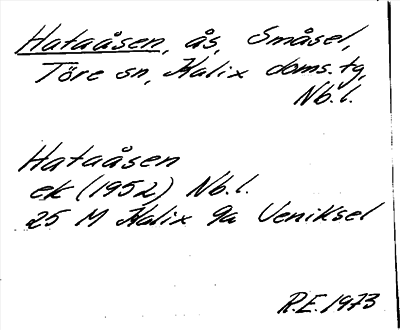 Hataåsen, ås, Småsel,
Töre sn, Kalix doms. tg,
Nb. l.
Hataåsen
ek (1952) Nb. l.
25 M Kalix 9a Veniksel
R.E. 1973